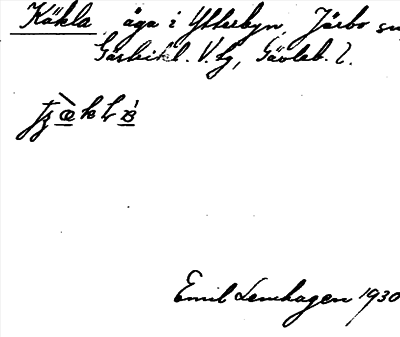 Käkla, åga i Ytterbyn, Järbo sn
Gästrikl. V. tg, Gävleb. l.
Emil Lenhagen 1930